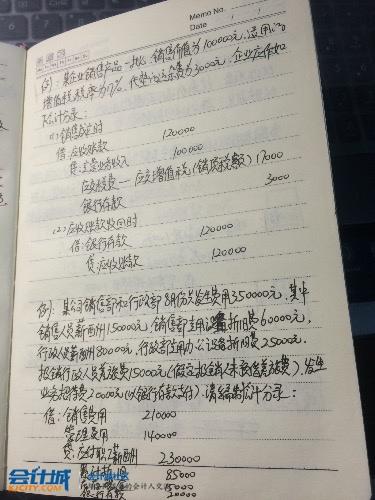 Memo No.
Date / /
例)某企业销售产品一批,销售价值为100000元,适用的
增值税税率为17%,代垫运杂费为3000元,企业应作如
下会计分录:
(1)销售成立时
借:应收账款 120000
贷:主营业务收入 100000
应交税费—应交增值税(销项税额)17000
银行存款 3000
(2)应收账款收回时
借:银行存款 120000
贷:应收账款 120000
例:某公司销售部和行政部8月份共发生费用350000元,其中
销售人员薪酬150000元,销售部专用设备折旧费60000元,
行政人员薪酬80000元,行政部专用办公设备折旧费25000元,
报销行政人员差旅费15000元(假定报销人未预借差旅费),发生
业务招待费20000元(以银行存款支付),请编制会计分录:
借:销售费用 210000
管理费用 140000
贷:应付职工薪酬 230000
累计折旧 85000
15000
银行存款 20000
会计城